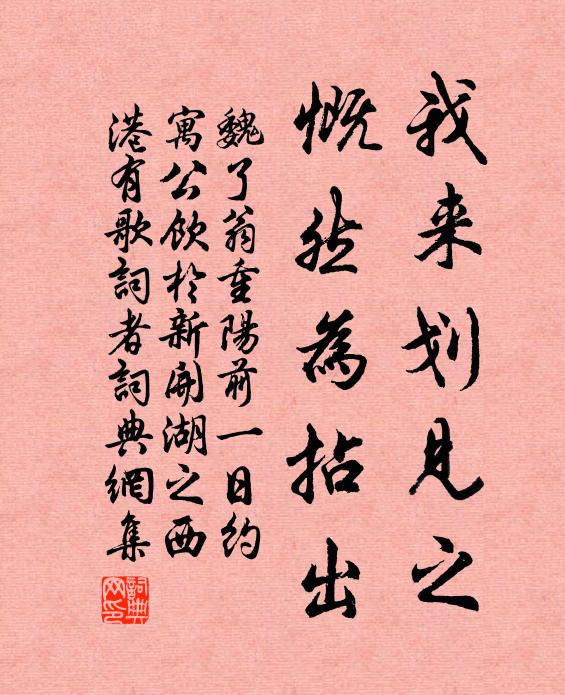 我来划見之
慨然為拈出
魏了翁重陽前一日約
寓公飲於新開湖之西
港有歌詞者詞典網集
詞典
网印